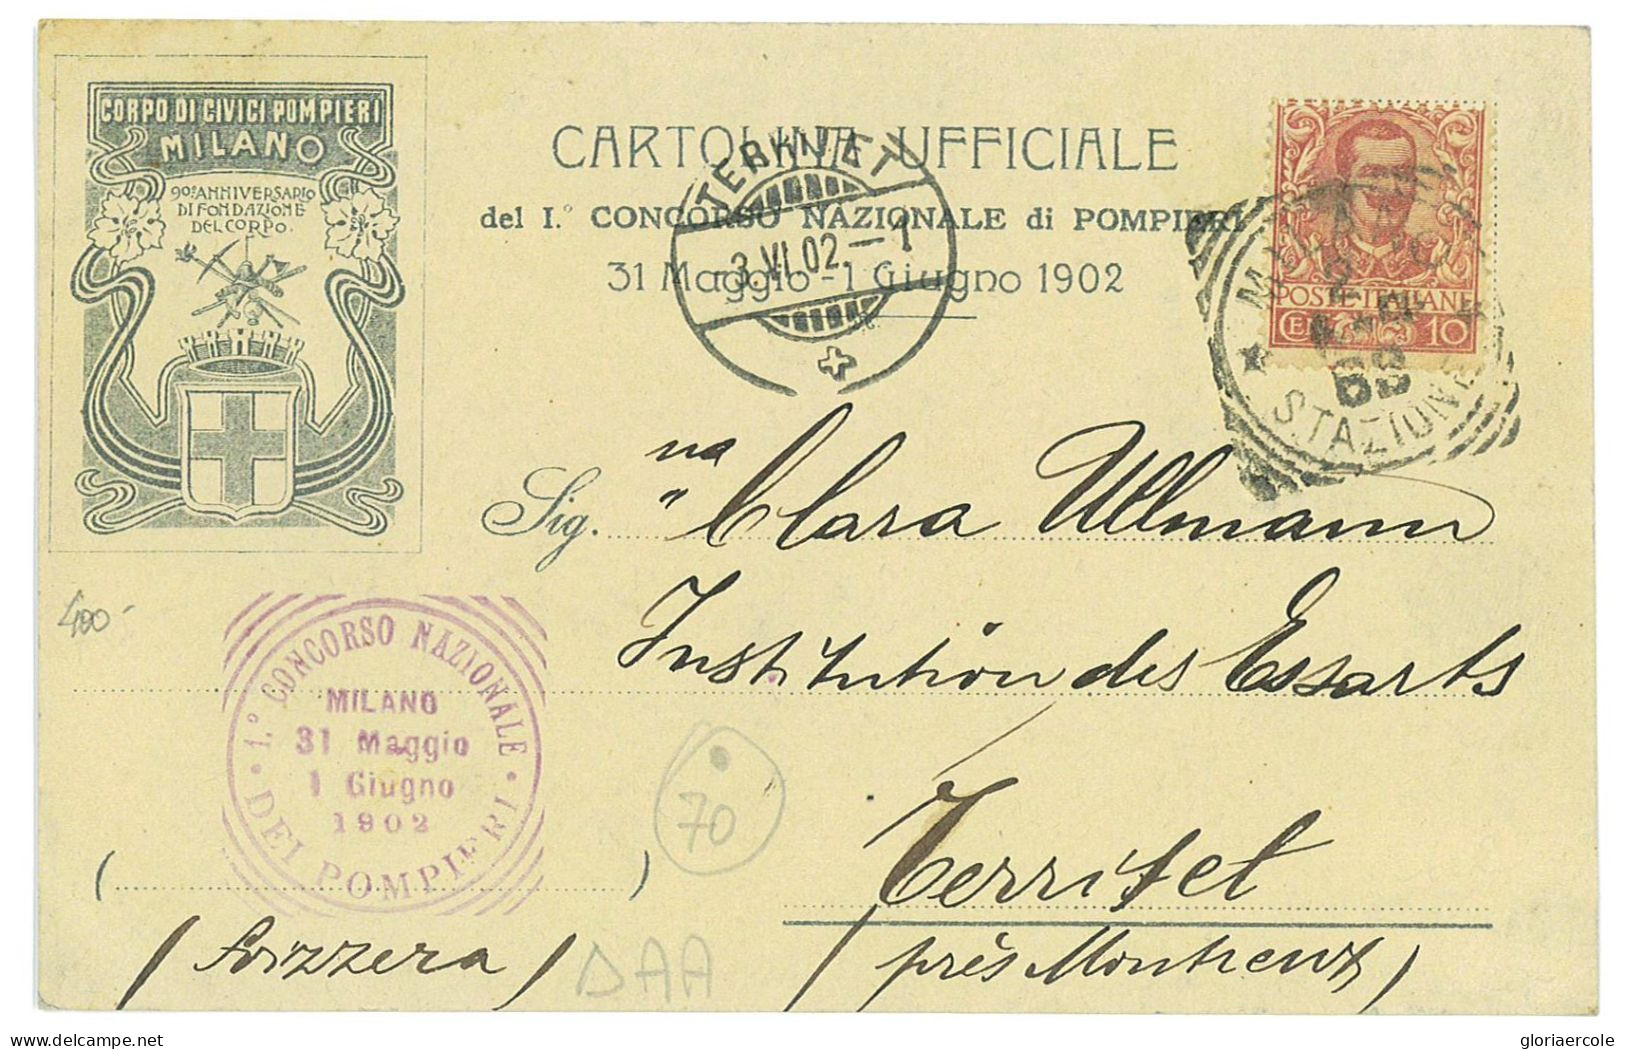 CORPO DI CIVICI POMPIERI
MILANO
90º ANNIVERSARIO
DI FONDAZIONE
DEL CORPO.
CARTOLINA UFFICIALE
del I.º CONCORSO NAZIONALE di POMPIERI
31 Maggio - 1 Giugno 1902
TERRITET
-3.VI.02.-1
POSTE ITALIANE
10
MILANO
STAZIONE
Sig. na Clara Ullmann
Institution des Essarts
Territet
(près Montreux)
(Svizzera)
400-
1.º CONCORSO NAZIONALE
MILANO
31 Maggio
1 Giugno
1902
DEI POMPIERI
70
DAA
delcampe.net
gloriaercole